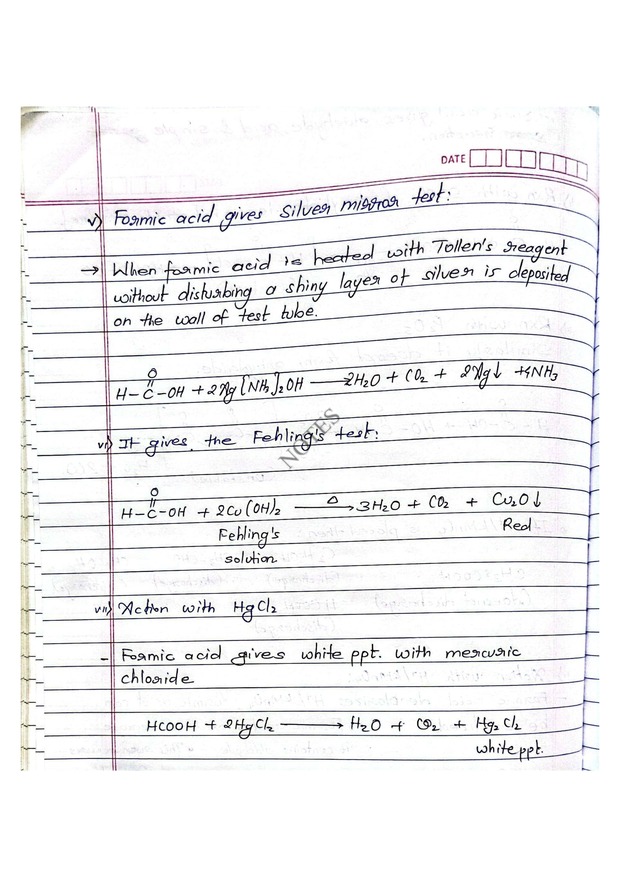 DATE
v) Formic acid gives Silver mirror test:
→ When formic acid is heated with Tollen's reagent
without disturbing a shiny layer of silver is deposited
on the wall of test tube.
O
H-C-OH + 2Ag[NH3]2OH → 2H2O + CO2 + 2Ag↓ + 4NH3
NOTES
vi) It gives the Fehling's test:
O
H-C-OH + 2Cu(OH)2 —Δ→ 3H2O + CO2 + Cu2O↓
Fehling's Red
solution
vii) Action with HgCl2
- Formic acid gives white ppt. with mercuric
chloride
HCOOH + 2HgCl2 → H2O + CO2 + Hg2Cl2
white ppt.